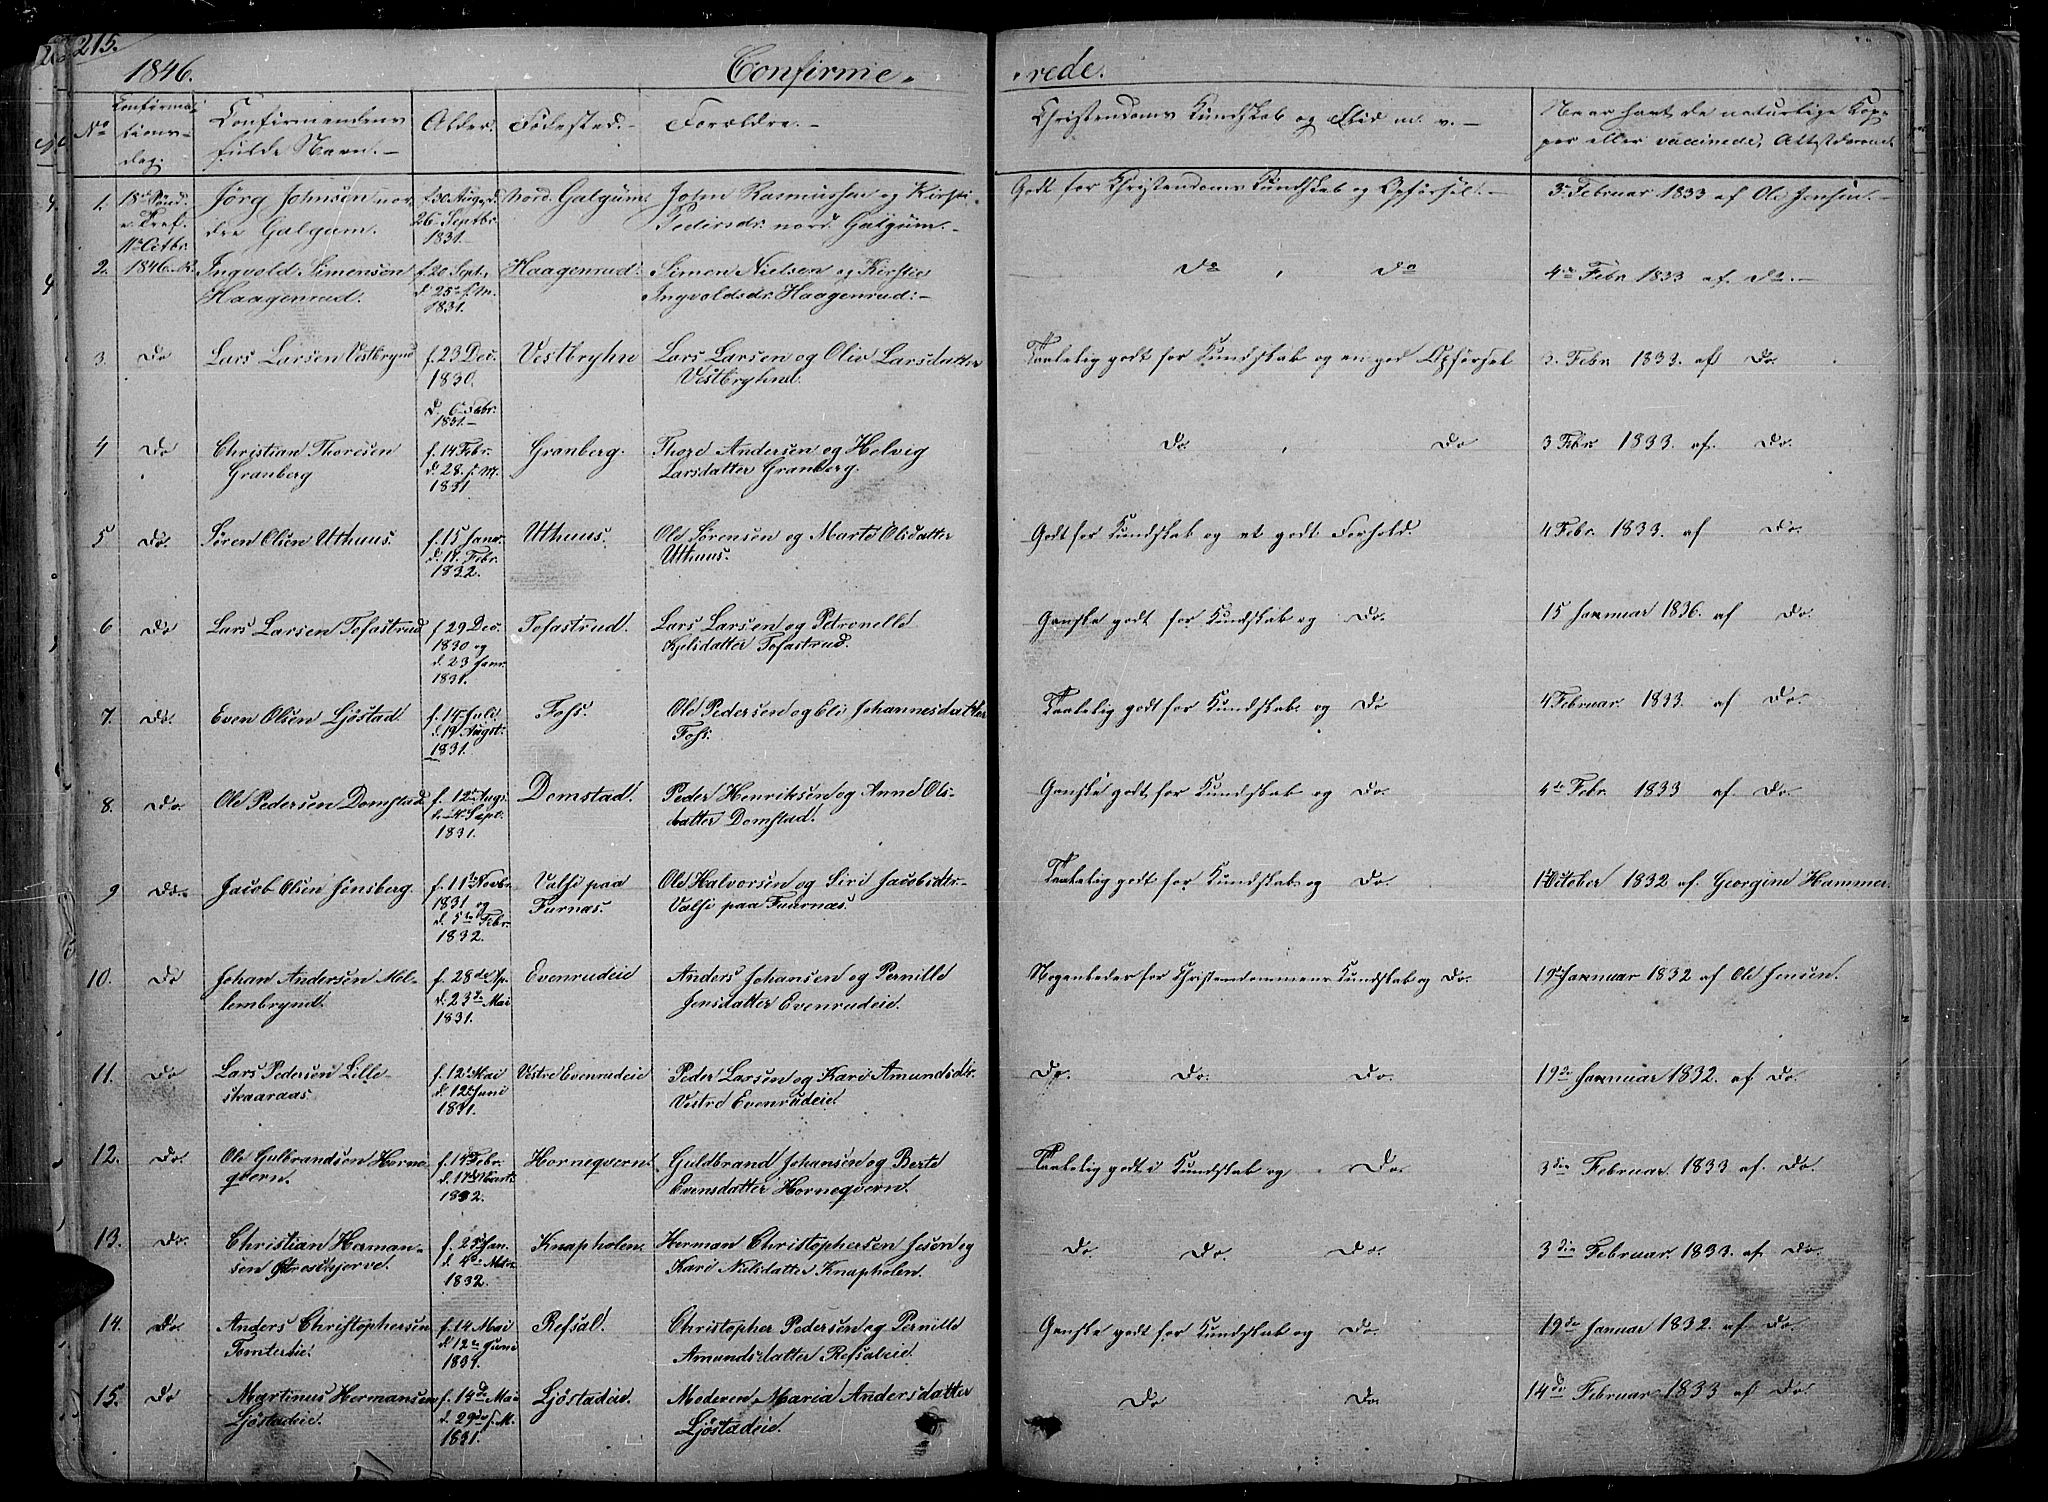 215.
1846. Confirme- -rede.
No Confirma-tions-dag. Confirmandens fulde Navn.- Alder. Födested.- Forældre.- Christendoms Kundskab og Flid m. v.- Naar havt de naturlige Kop-
per eller vaccinede, Attest derom
1. 18de Sönd. e. Tref. 11te Octbr. Jörg Johnsen nor- f. 30 Aug. d. Nord. Galgum. John Rasmussen og Kirsti Godt for Christendoms Kundskab og Opförsel.- 3 Februar 1833 af Ole Jensen.-
dre Galgum. 26 Septbr. 1831. Pedersdr. nord. Galgum.-
2. 1846. Ingvold Simensen f. 20 Sept. Haagenrud. Simen Nielsen og Kirstie Do , Do 4de Febr 1833 af. Do.-
Haagenrud. d. 25 s. M. 1831. Ingvoldsdr. Haagenrud.-
3. Do Lars Larsen Vestbrynd f. 23 Dec. Vestbryhn Lars Larsen og Oliv Larsdatter Taalelig godt for Kundskab og en god Opförsel 2. Febr 1833. af Do.
1830. Vestbryhnd.
d. 6 Febr.
1831.-
4 Do Christian Thoresen f. 14 Febr. Granberg. Thore Andersen og Helvig Do. , Do 3 Febr 1833. af. Do.
Granberg d. 28. s. M. Larsdatter Granberg.
1831
5 Do. Sören Olsen Uthuus. f. 15 Janr. Uthuus. Ole Sörensen og Marte Olsdatter Godt for Kundskab og et godt Forhold. 4 Febr. 1833. af Do.
d. 17. Febr. Uthuus.
1832.
6 Do Lars Larsen Tofastrud f. 29 Dec. Tofastrud. Lars Larsen og Petronelle Ganske godt for Kundskab og Do. 15 Januar 1836. af Do.
1830 og Kjelsdatter Tofastrud.
d. 23 Janr.
1831.
7. Do. Even Olsen Ljöstad. f. 14 Juld. Foss. Ole Pedersen og Eli Johannesdatter Taalelig godt for Kundskab og Do 4 Februar. 1833. af Do.
d. 14 Augst. Foss.
1831.
8. Do. Ole Pedersen Domstad. f. 12 Augs. Domstad. Peder Henriksen og Anne Ols- Ganske godt for Kundskab og Do. 4de Febr. 1833 af. Do.
d. 4 Sept. datter Domstad.
1831.
9 Do.- Jacob Olsen Jensberg. f. 11te Novbr. Valse paa Ole Halvorsen og Siri Jacobsdtr.- Taalelig godt for Kundskab og Do. 1 October 1832 af. Georgine Hammer.
1831 og Furnæs. Valse paa Fuurnæs.
d. 5te Febr.
1832.
10. Do Johan Andersen Mel- f. 28de Ap. Evenrudeie Anders Johansen og Pernille Nogenleder for Christendommens Kundskab og Do. 19 Januar 1832 af Ole Jensen.
lembrynd. d. 23de Mai Jensdatter Evenrudeie.
1831.
11. Do Lars Pedersen Lille- f. 12 Mai Vestre Evenrudeie Peder Larsen og Kari Amundsdtr. Do. Do. Do. 19de Januar 1832. af Do.
skaaraas. d. 12 Juni Vestre Evenrudeie.
1831.
12. Do. Ole Gulbrandsen Horne- f. 14 Febr. Horneqvern. Guldbrand Johansen og Berte Taalelig godt i Kundskab og Do. 3die Februar. 1833 af. Do.
qvern. d. 17 Mart. Evensdatter Horneqvern.
1832.
13. Do. Christian Herman- f. 25 Jan. Knapholen. Herman Christophersen Jeson og Do Do. Do. 3die Februar. 1833. af. Do.
sen Greskjerve. d. 4 Mar. Kari Nielsdatter Knapholen.
1832.
14. Do. Anders Christophersen f. 14 Mai Refsal. Christopher Pedersen og Pernille Ganske godt for Kundskab og Do. 19de Januar 1832. af Do.
Tomterie. d. 12 Juni Amundsdatter Refsaleie.
1831.
15. Do Martinus Hermansen f. 14de Mai Ljöstadeie. Moderen, Maria Andersdatter Do Do. 14de Februar 1833 af Do.
Ljöstadeie. d. 29de s. M. Ljöstadeie.
1831.